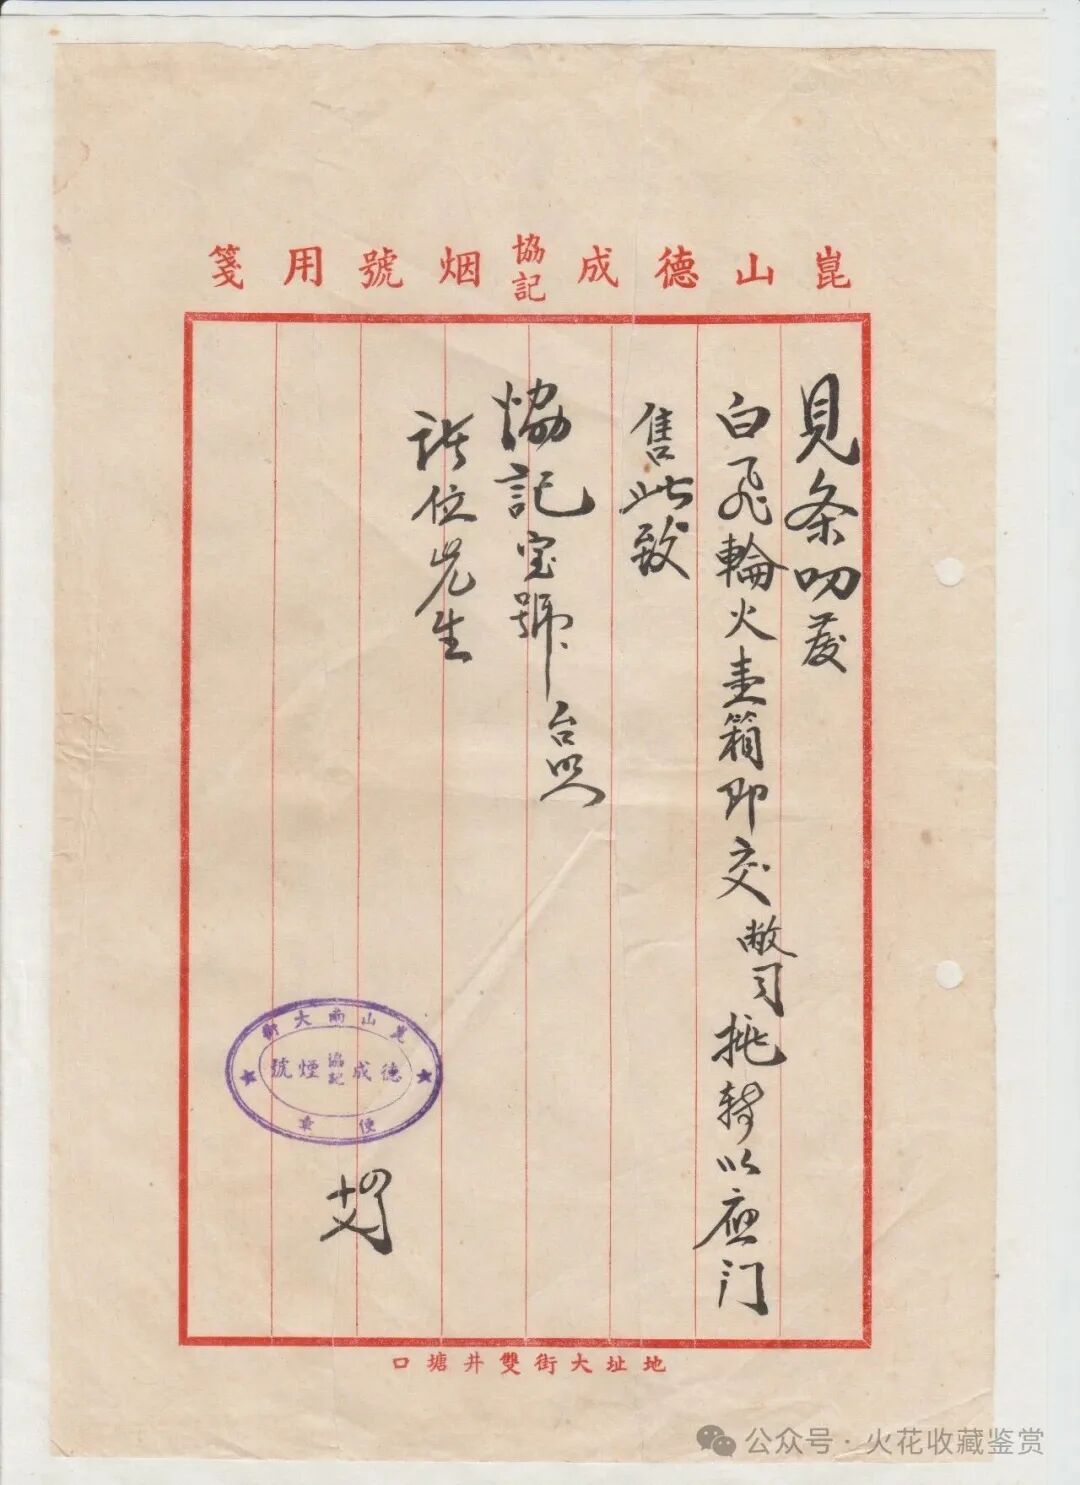 崑山德成協記烟號用箋
見条叨發
白飛輪火壹箱即交敝司挑轉以應门
售此致
協記宝號台照
諸位先生
崑山南大街
德成協記煙號
便章
地址大街雙井塘口
公众号·火花收藏鉴赏